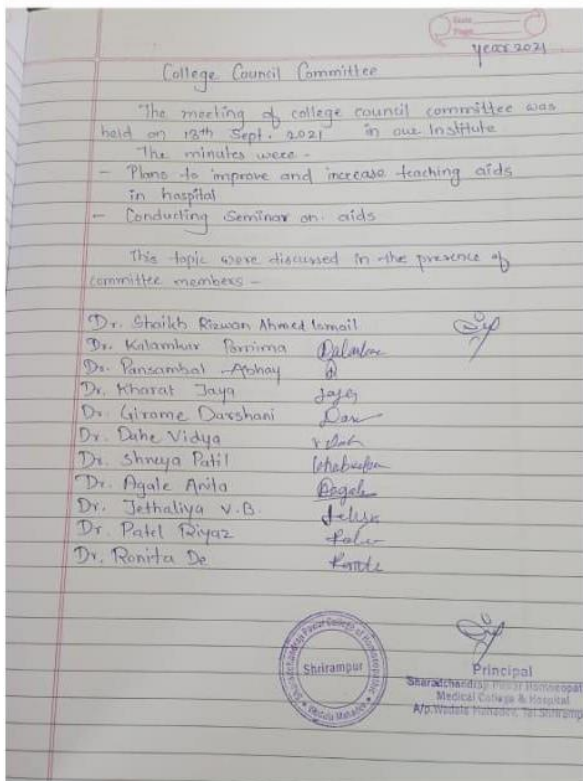 Date
Page
year 2021
College Council Committee
The meeting of college council committee was
held on 13th Sept. 2021 in our Institute
The minutes were -
- Plans to improve and increase teaching aids
in hospital
- Conducting Seminar on aids
This topic were discussed in the presence of
committee members -
Dr. Shaikh Rizwan Ahmed Ismail
Dr. Kalamkar Pornima
Dr. Pansambal Abhay
Dr. Kharat Jaya
Dr. Girame Darshani
Dr. Dahe Vidya
Dr. Shreya Patil
Dr. Agale Anita
Dr. Jethaliya V.B.
Dr. Patel Riyaz
Dr. Ronita De
Sharadchandraji Pawar College of Homoeopathic
Shrirampur
Wadala Mahadev
Principal
Sharadchandraji Pawar Homoeopathic
Medical College & Hospital
A/p. Wadala Mahadev, Tal. Shrirampur